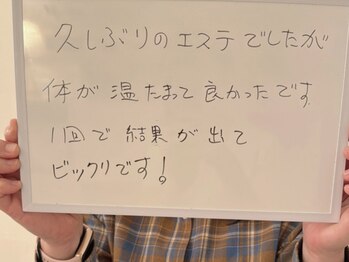 久しぶりのエステでしたが
体が温たまって良かったです
1回で結果が出て
ビックリです!